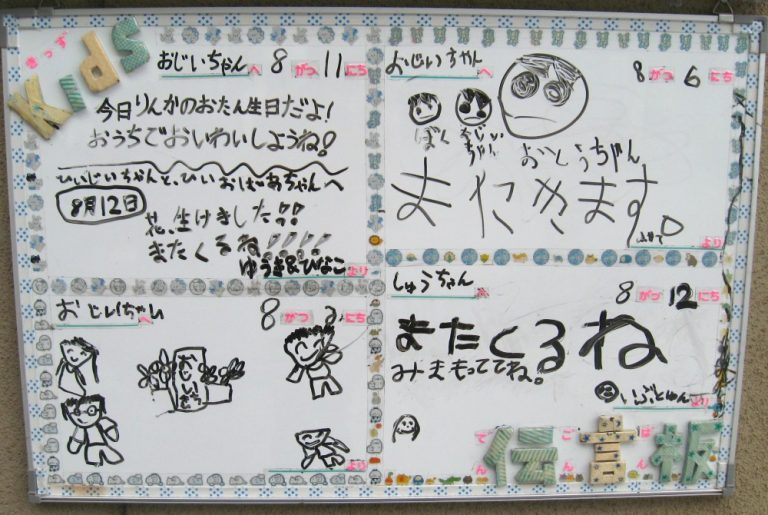 きっず
Kids
おじいちゃんへ 8がつ11にち
今日りんかのおたん生日だよ!
おうちでおいわいしようね!
ひいじいちゃんと、ひいおばあちゃんへ
8月12日
花、生けました!!
またくるね!!!!
ゆうき&ひなこより
おじいちゃんへ 8がつ6にち
ぼく
おじいちゃん
おとうちゃん
またきます。
より
おじいちゃんへ 8がつ2にち
おじいちゃん
より
しゅうちゃんへ 8がつ12にち
またくるね
みまもっててね。
いぶとゆんより
でんごんばん
伝言板